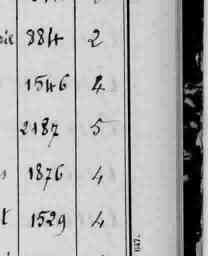 884 2
1546 4
2187 5
1876 4
1529 4